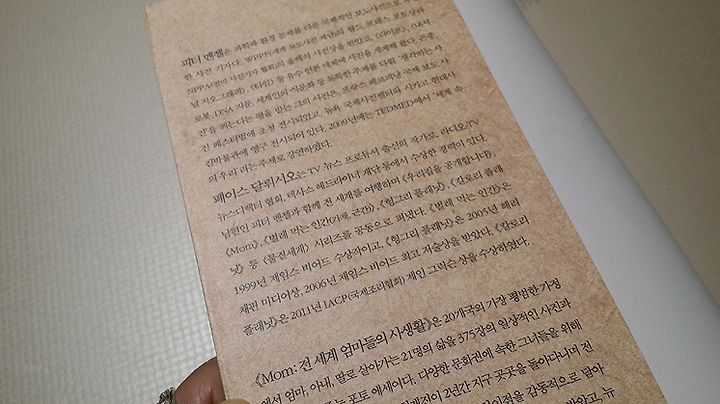 피터 멘젤은 과학과 환경 문제를 다룬 국제적인 보도사진으로
한 사진 기자다. WPPF(세계 보도사진 재단)의 월드 프레스 포토상과
NPPA(전미 사진기자 협회)의 올해의 사진상을 받았고, 《라이프》, 《내셔
널 지오그래픽》, 《타임》 등 유수 언론 매체에 사진을 게재해 왔다.
로봇, DNA 지문, 세계인의 식문화 등 독특한 주제를 다뤄 '생각하는 사
진'을 찍는다는 평을 받는 그의 사진은, 프랑스 페르피냥 국제 보도 사
진 페스티벌에 초청 전시되었고, 뉴욕 국제사진센터와 시카고 현대사
진박물관에 영구 전시되어 있다. 2009년에는 TEDMED에서 '세계 속
의 우리'라는 주제로 강연하였다.
페이스 달뤼시오는 TV 뉴스 프로듀서 출신의 작가로, 라디오TV
뉴스디렉터 협회, 텍사스 헤드라이너 재단 등에서 수상한 경력이 있다.
남편인 피터 멘젤과 함께 전 세계를 여행하며 《우리집을 공개합니다》,
《Mom》, 《벌레 먹는 인간(가제, 근간)》, 《헝그리 플래닛》, 《칼로리 플래
닛》 등 《물전세계》 시리즈를 공동으로 펴냈다. 《벌레 먹는 인간》은
1999년 제임스 비어드 수상작이고, 《헝그리 플래닛》은 2005년 해리
채핀 미디어상, 2006년 제임스 비어드 최고 저술상을 받았다. 《칼로리
플래닛》은 2011년 IACP(국제조리협회) 제인 그릭슨상을 수상하였다.
《Mom: 전 세계 엄마들의 사생활》은 20개국의 가장 평범한 가정
에서 엄마, 아내, 딸로 살아가는 21명의 삶을 375장의 일상적인 사진과
포토 에세이다. 다양한 문화권에 속한 그녀들을 위해
2년간 지구 곳곳을 돌아다니며 전
감동적으로 담아